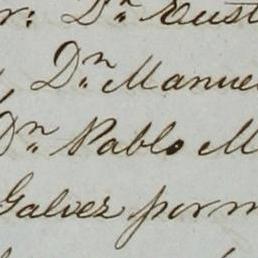 r: Dn. Eust
, Dn. Manue
Dn. Pablo M
Galvez por m